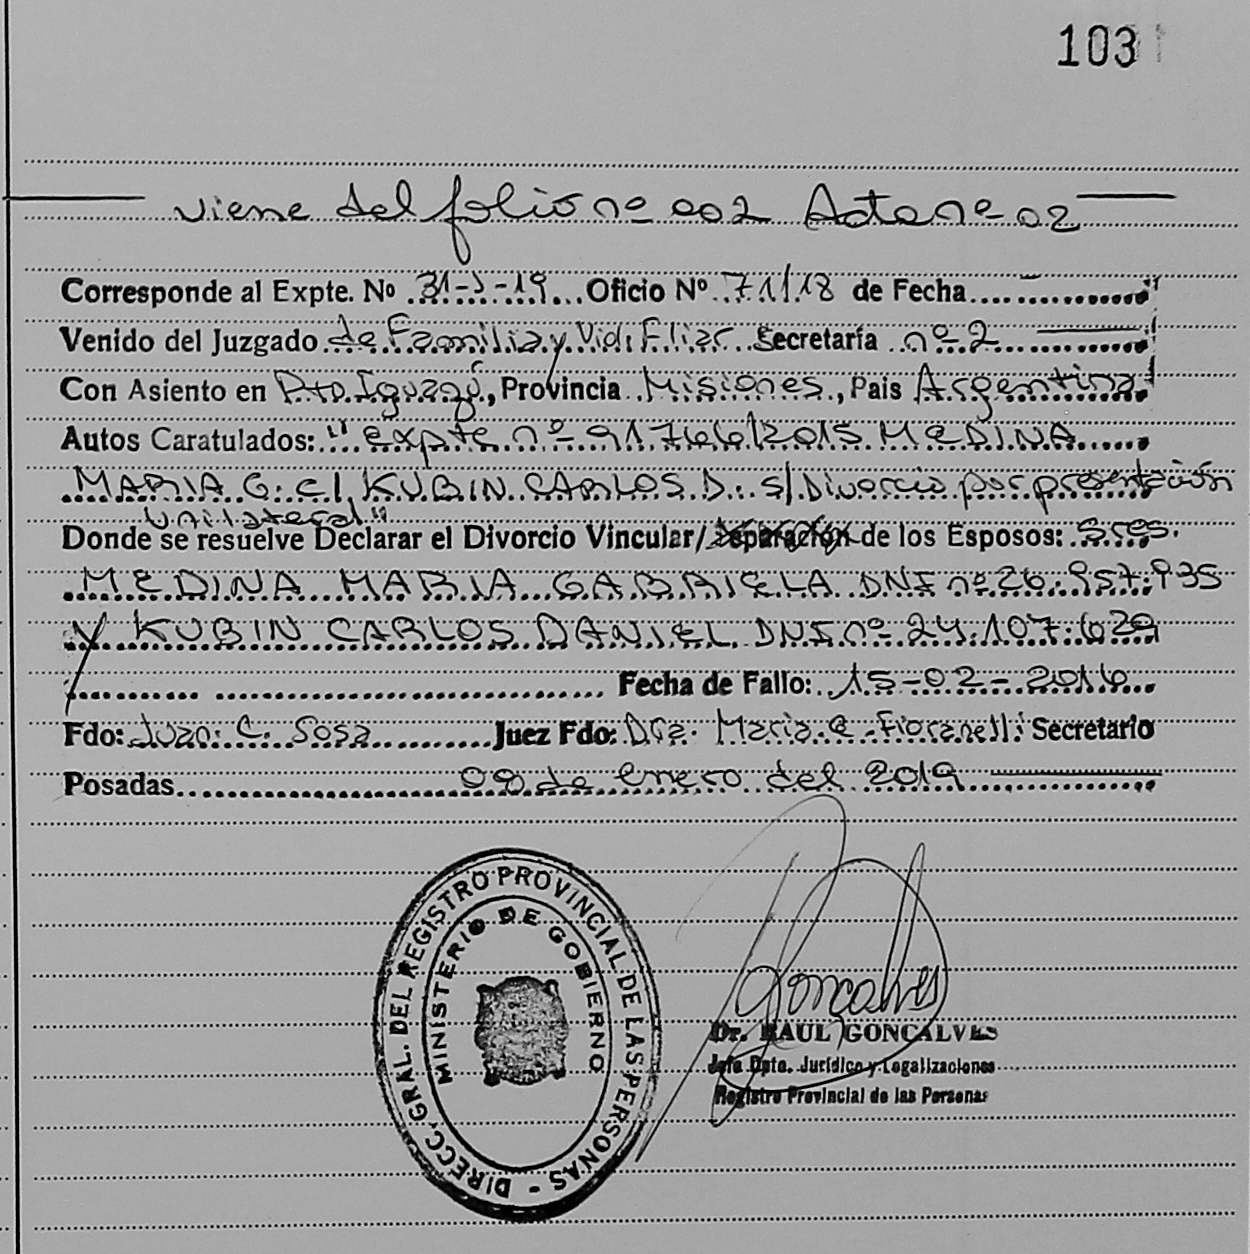 103
viene del folio nº 002 Acta nº 02
Corresponde al Expte. Nº 31-J-19 Oficio Nº 71/18 de Fecha
Venido del Juzgado de Familia y Viol. Fliar. Secretaría nº 2
Con Asiento en Pto. Iguazú, Provincia Misiones, Pais Argentina
Autos Caratulados: "expte nº 91.766/2015 MEDINA
MARIA G. c/ KUBIN CARLOS D. s/ Divorcio por presentación
Unilateral"
Donde se resuelve Declarar el Divorcio Vincular/Separación de los Esposos: Sres.
MEDINA MARIA GABRIELA DNI nº 26.957.935
y KUBIN CARLOS DANIEL DNI nº 24.107.629
Fecha de Fallo: 15-02-2016
Fdo: Juan C. Sosa Juez Fdo: Dra. Maria C. Fioranelli Secretario
Posadas 09 de enero del 2019
DIRECC. GRAL. DEL REGISTRO PROVINCIAL DE LAS PERSONAS -
MINISTERIO DE GOBIERNO
Goncalves
Dr. RAUL GONCALVES
Jefe Dpto. Jurídico y Legalizaciones
Registro Provincial de las Personas